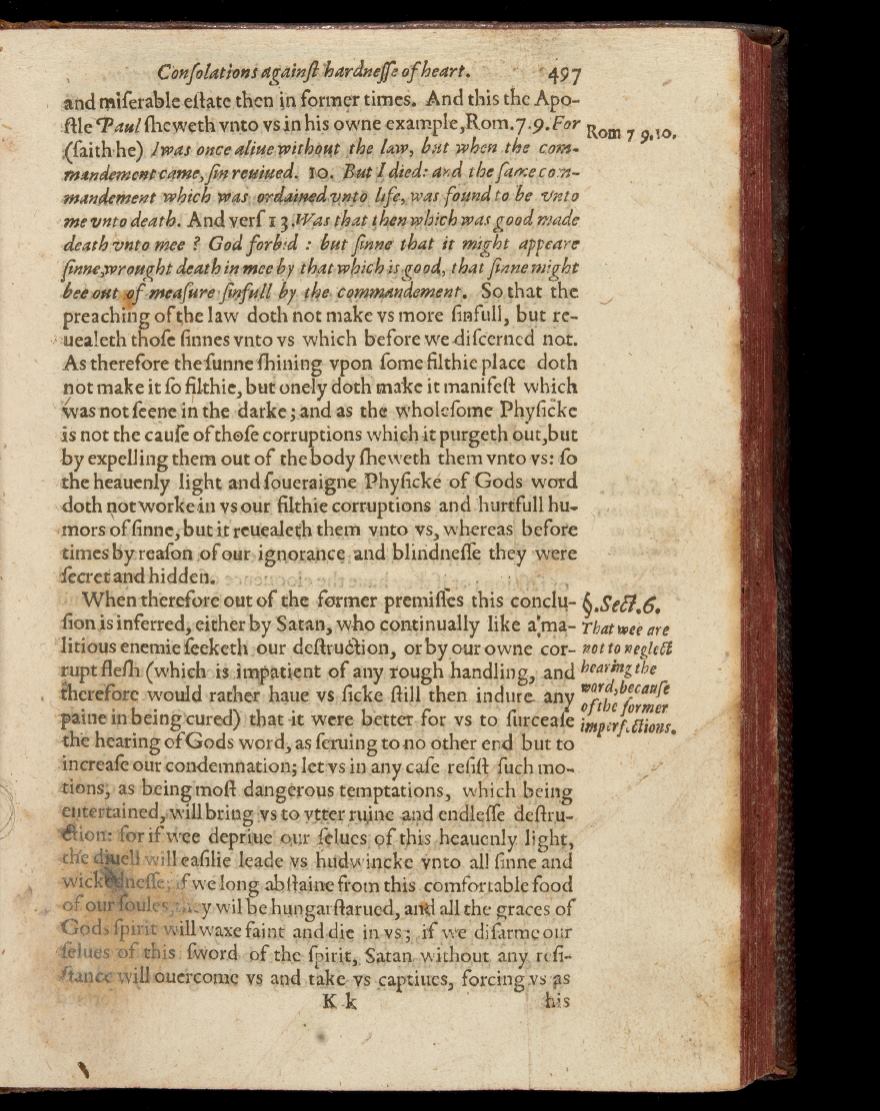 Conſolations againſt hardneſſe of heart. 497
and miſerable eſtate then in former times. And this the Apo-
ſtle Paul ſheweth vnto vs in his owne example, Rom.7.9. For
Rom 7 9.10.
(ſaith he) I was once aliue without the law, but when the com-
mandement came, ſin reuiued. 10. But I died: and the ſame com-
mandement which was ordained vnto life, was found to be vnto
me vnto death. And verſ 13. Was that then which was good made
death vnto mee? God forbid: but ſinne that it might appeare
ſinne, wrought death in mee by that which is good, that ſinne might
bee out of meaſure ſinfull by the commandement. So that the
preaching of the law doth not make vs more ſinfull, but re-
uealeth thoſe ſinnes vnto vs which before we diſcerned not.
As therefore the ſunne ſhining vpon ſome filthie place doth
not make it ſo filthie, but onely doth make it manifeſt which
was not ſeene in the darke; and as the wholeſome Phyſicke
is not the cauſe of thoſe corruptions which it purgeth out, but
by expelling them out of the body ſheweth them vnto vs: ſo
the heauenly light and ſoueraigne Phyſicke of Gods word
doth not worke in vs our filthie corruptions and hurtfull hu-
mors of ſinne, but it reuealeth them vnto vs, whereas before
times by reaſon of our ignorance and blindneſſe they were
ſecret and hidden.
When therefore out of the former premiſſes this conclu-
ſion is inferred, either by Satan, who continually like a ma-
litious enemie ſeeketh our deſtruction, or by our owne cor-
rupt fleſh (which is impatient of any rough handling, and
therefore would rather haue vs ſicke ſtill then indure any
paine in being cured) that it were better for vs to ſurceaſe
§. Sect. 6.
That wee are
not to neglect
hearing the
word, becauſe
of the former
imperfections.
the hearing of Gods word, as ſeruing to no other end but to
increaſe our condemnation; let vs in any caſe reſiſt ſuch mo-
tions, as being moſt dangerous temptations, which being
entertained, will bring vs to vtter ruine and endleſſe deſtru-
ction: for if wee depriue our ſelues of this heauenly light,
the diuell will eaſilie leade vs hudwincke vnto all ſinne and
wickedneſſe; if we long abſtaine from this comfortable food
of our ſoules, they wil be hungarſtarued, and all the graces of
Gods ſpirit will waxe faint and die in vs; if we diſarme our
ſelues of this ſword of the ſpirit, Satan without any reſi-
ſtance will ouercome vs and take vs captiues, forcing vs as
K k his